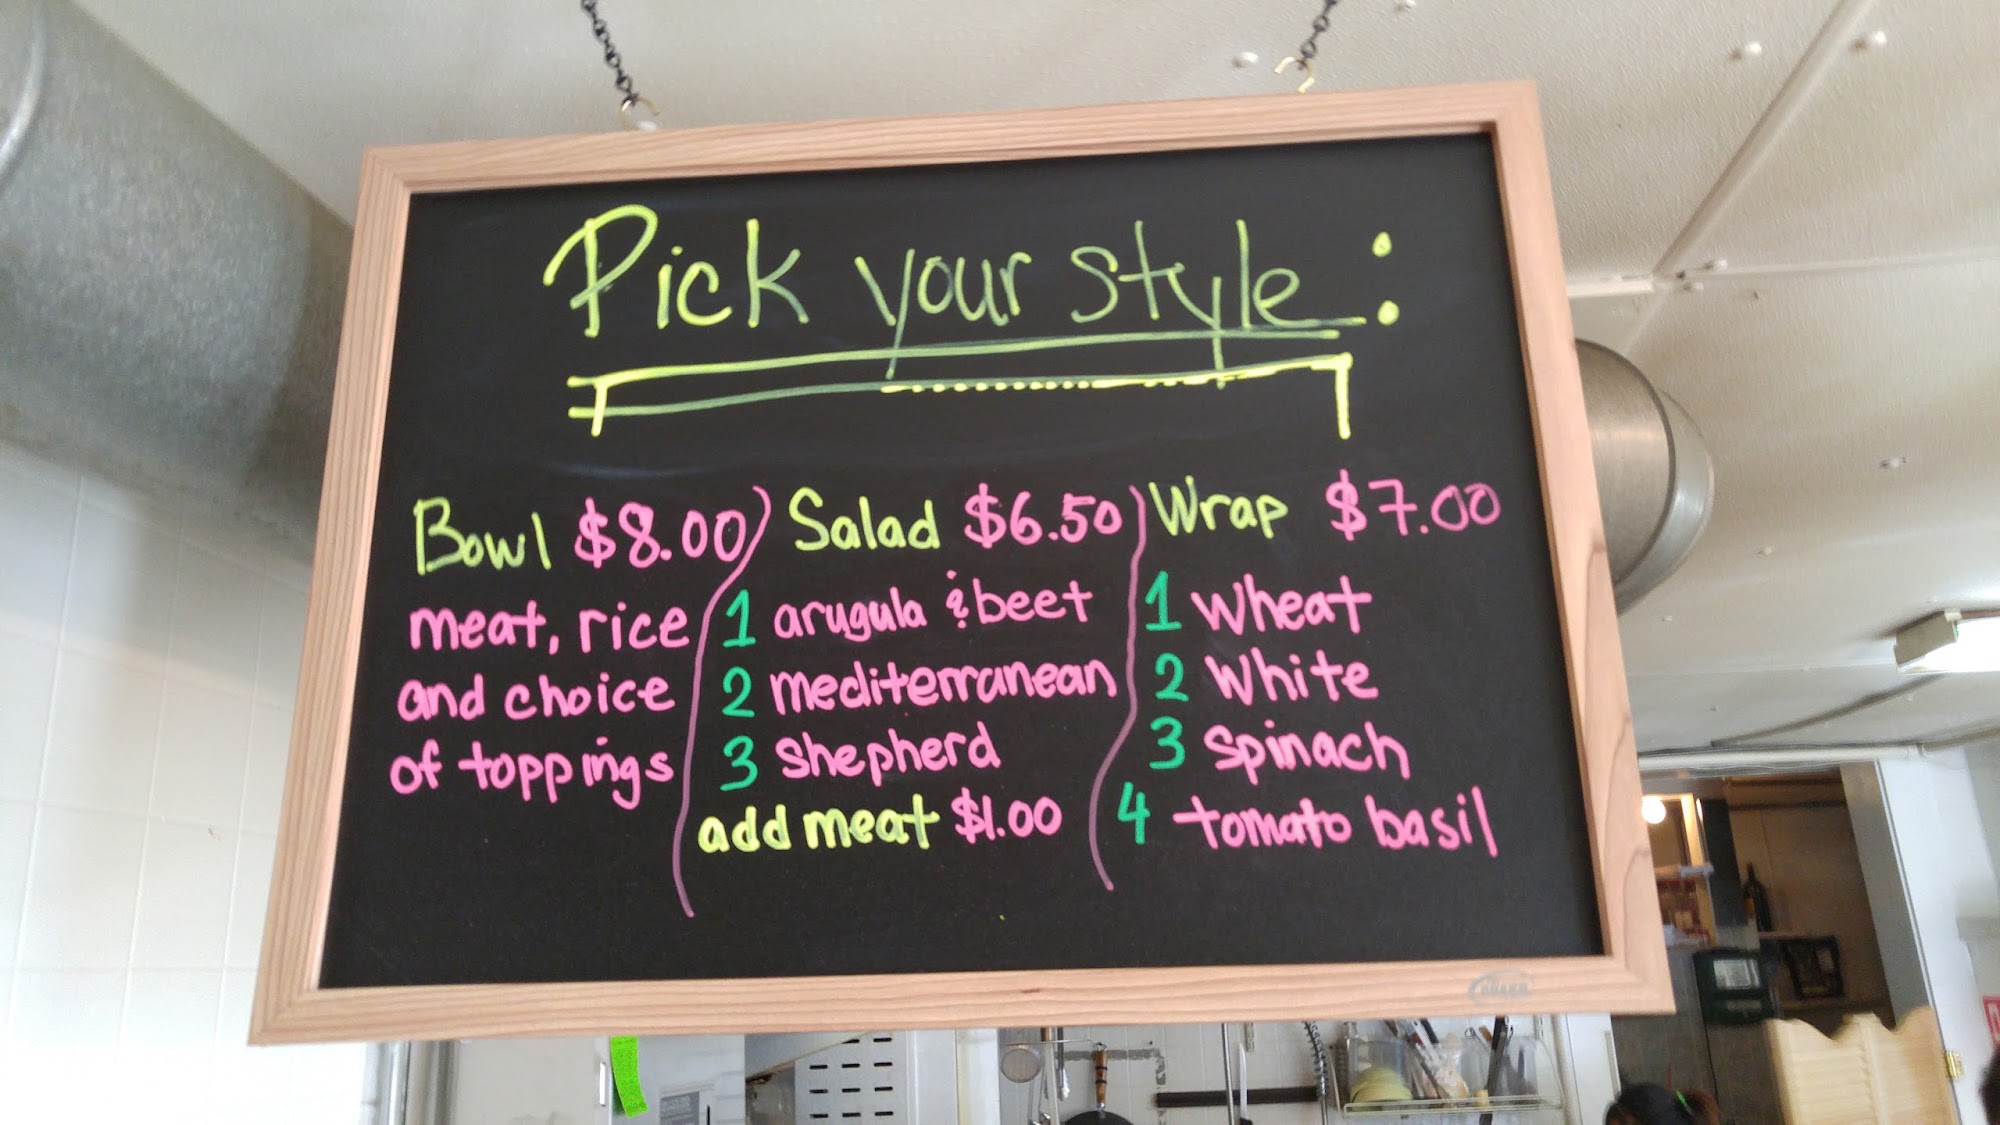 Pick your style :
Bowl $8.00
meat, rice
and choice
of toppings
Salad $6.50
1 arugula & beet
2 mediterranean
3 shepherd
add meat $1.00
Wrap $7.00
1 Wheat
2 White
3 Spinach
4 tomato basil